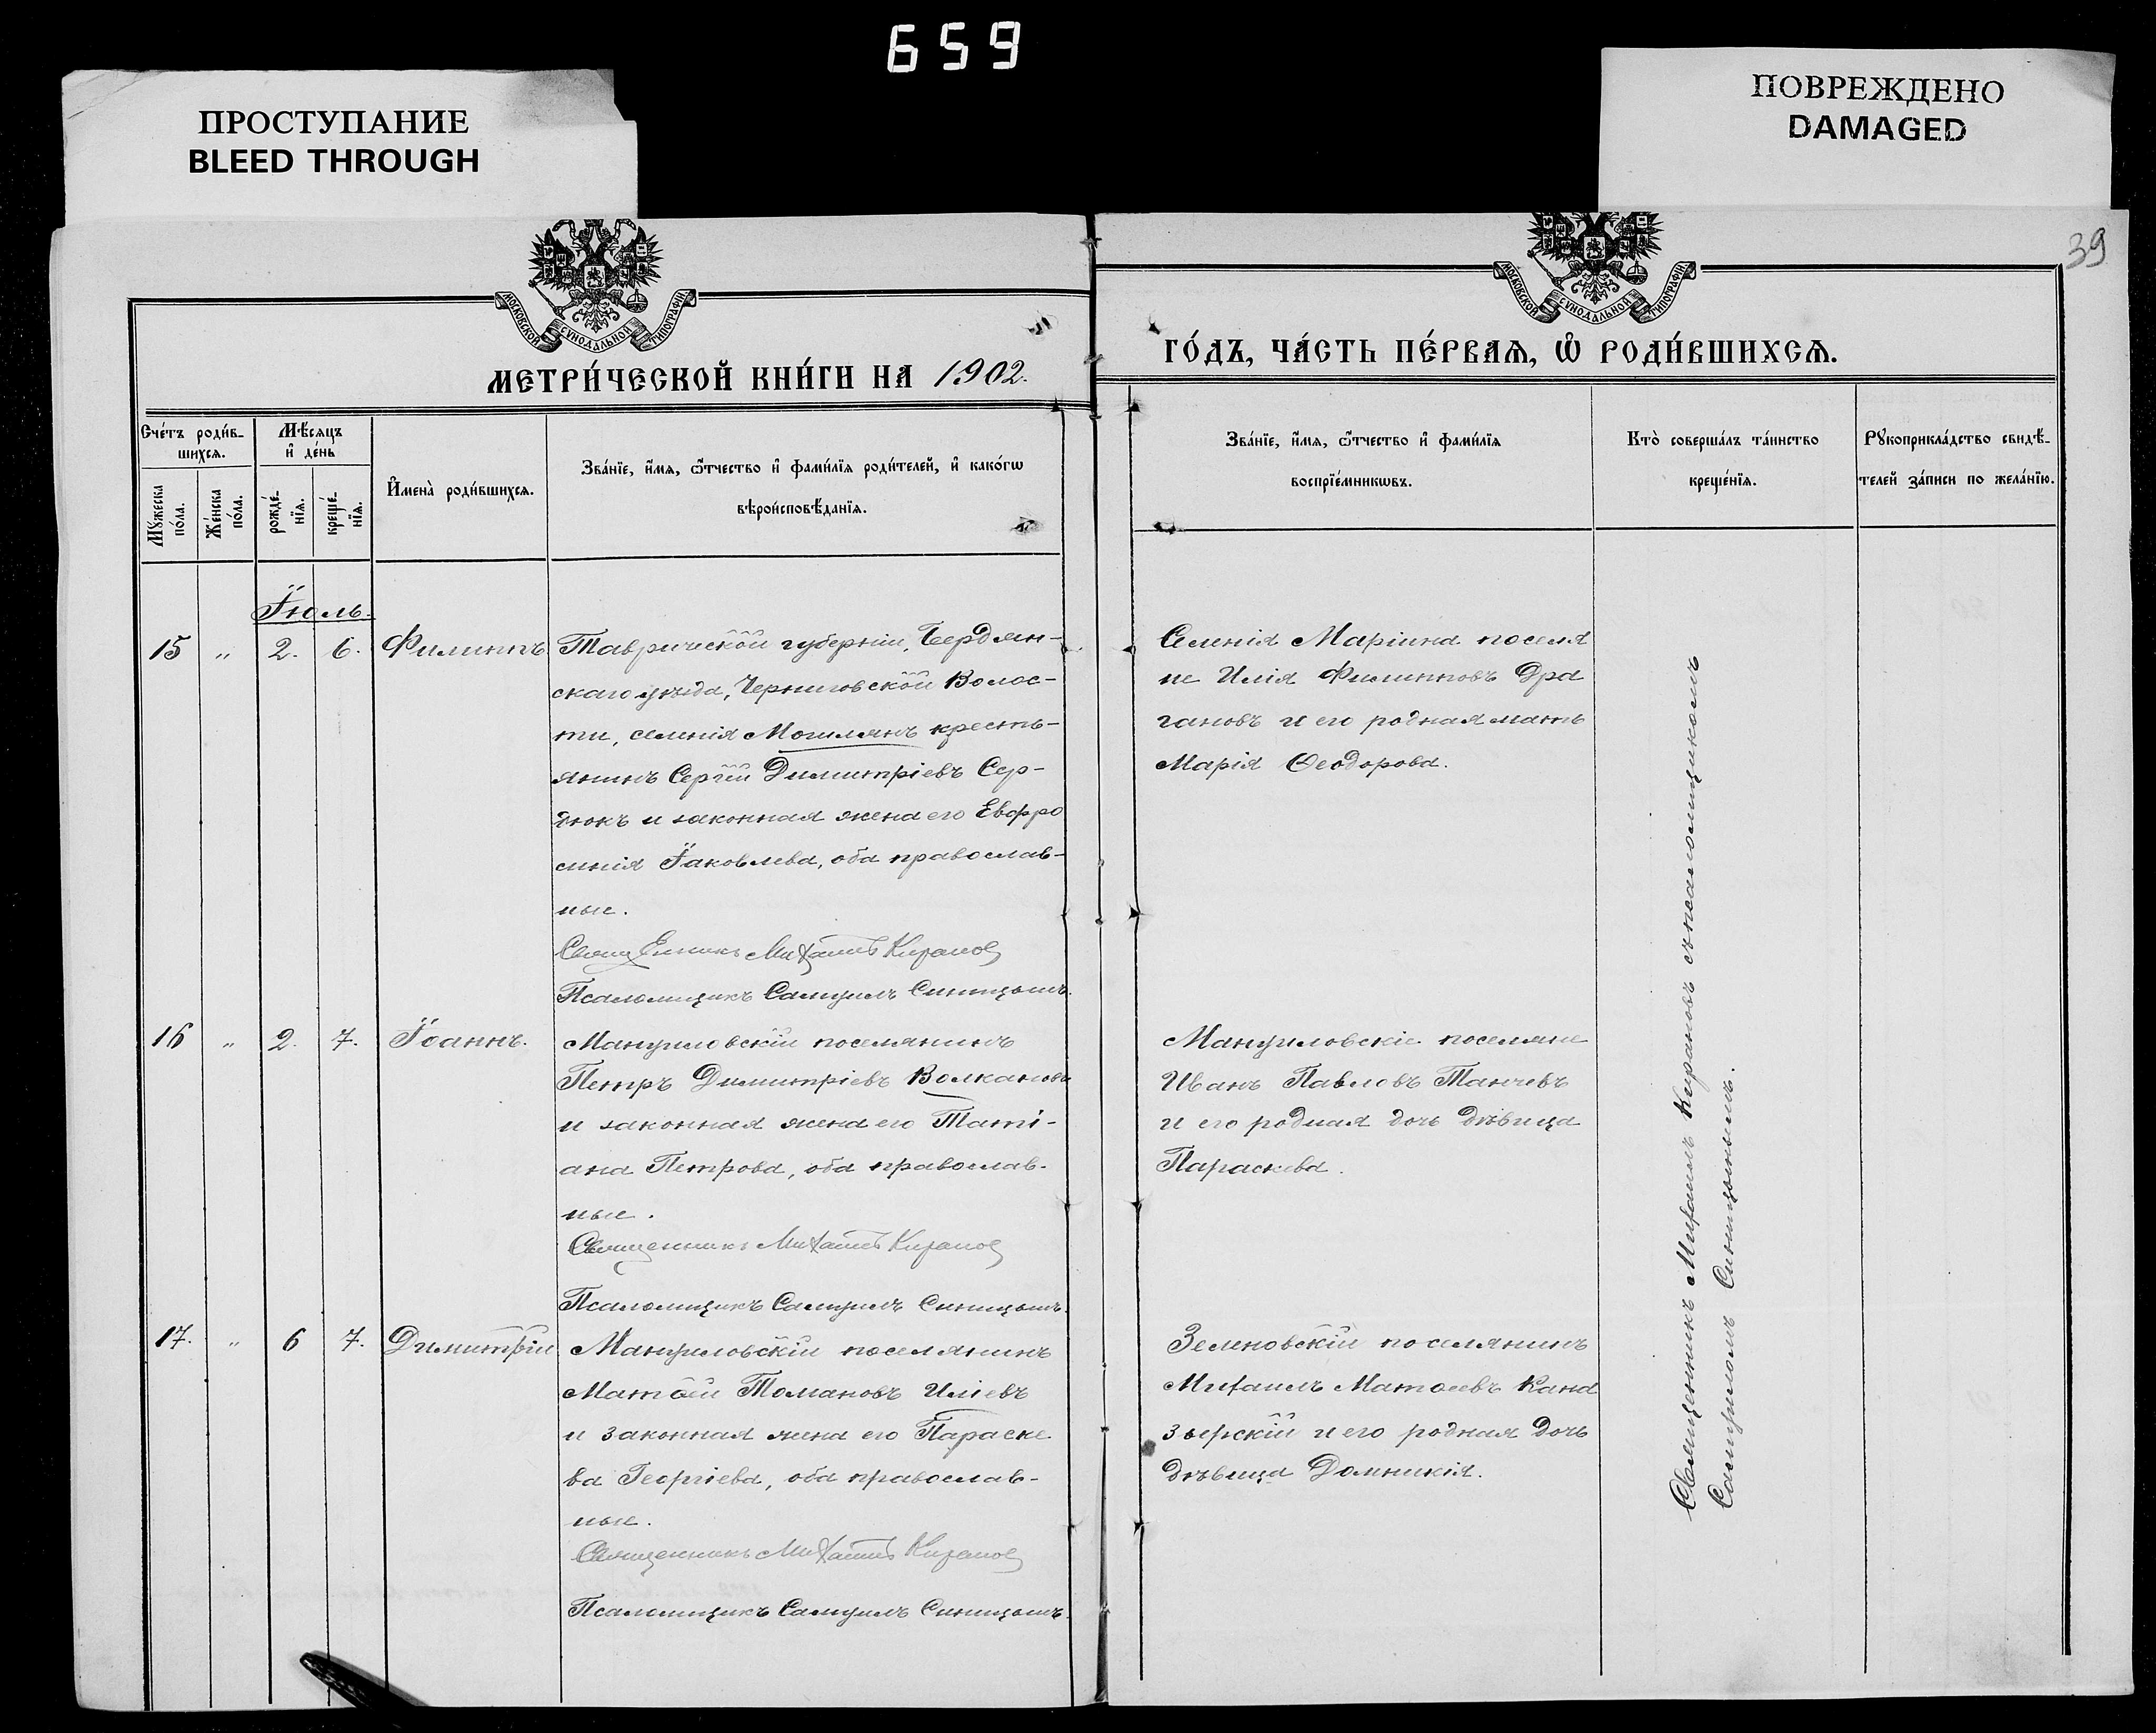 659
ПРОСТУПАНИЕ
BLEED THROUGH
ПОВРЕЖДЕНО
DAMAGED
39
МОСКОВСКОЙ СѴНОДАЛЬНОЙ ТИПОГРАФІИ
МОСКОВСКОЙ СѴНОДАЛЬНОЙ ТИПОГРАФІИ
МЕТРИ́ЧЕСКОЙ КНИ́ГИ НА 1902.
ГО́ДЪ, ЧА́СТЬ ПЕ́РВАѦ, Ѡ҆ РОДИ́ВШИХСѦ.
Сче́тъ роди́в-
шихсѧ.
Мѣ́сѧцъ
и҆ де́нь
Мꙋ́жеска
по́ла.
Же́нска
по́ла.
рожде́-
нїѧ.
креще́-
нїѧ.
И҆мена̀ роди́вшихсѧ.
Зва́нїе, и҆́мѧ, ѻ҆́тчество и҆ фами́лїѧ роди́телей, и҆ како́гѡ
вѣроисповѣ́данїѧ.
Зва́нїе, и҆́мѧ, ѻ҆́тчество и҆ фами́лїѧ
воспрїе́мникѡвъ.
Кто̀ соверша́лъ та́инство
креще́нїѧ.
Рꙋкоприкла́дство свидѣ́-
телей за́писи по жела́нїю.
Іюль.
15 „ 2. 6. Филиппъ
Таврической губерніи, Бердян-
скаго уѣзда, Черниговской Волос-
ти, селенія Могилянъ кресть-
янинъ Сергій Димитріевъ Сер-
дюкъ и законная жена его Евфро
синія Іаковлева, оба православ-
ные.
Священникъ Михаилъ Кирановъ
Псаломщикъ Самуилъ Синицынъ.
Селенія Маріина поселя
не Илія Филипповъ Дра
гановъ и его родная мать
Марія Ѳеодорова.
16 „ 2. 7. Іоаннъ.
Мануиловскій поселянинъ
Петръ Димитріевъ Волкановъ
и законная жена его Таті-
ана Петрова, оба православ-
ные.
Священникъ Михаилъ Кирановъ
Псаломщикъ Самуилъ Синицынъ.
Мануиловскіе поселяне
Иванъ Павловъ Танчевъ
и его родная дочь дѣвица
Параскева.
17. „ 6 7. Димитрій
Мануиловскій поселянинъ
Матѳей Томановъ Иліевъ
и законная жена его Параске
ва Георгіева, оба православ-
ные.
Священникъ Михаилъ Кирановъ
Псаломщикъ Самуилъ Синицынъ.
Зеленовскій поселянинъ
Михаилъ Матѳеевъ Кана
зырскій и его родная дочь
дѣвица Домникія.
Священникъ Михаилъ Кирановъ съ псаломщикомъ
Самуиломъ Синицынымъ.